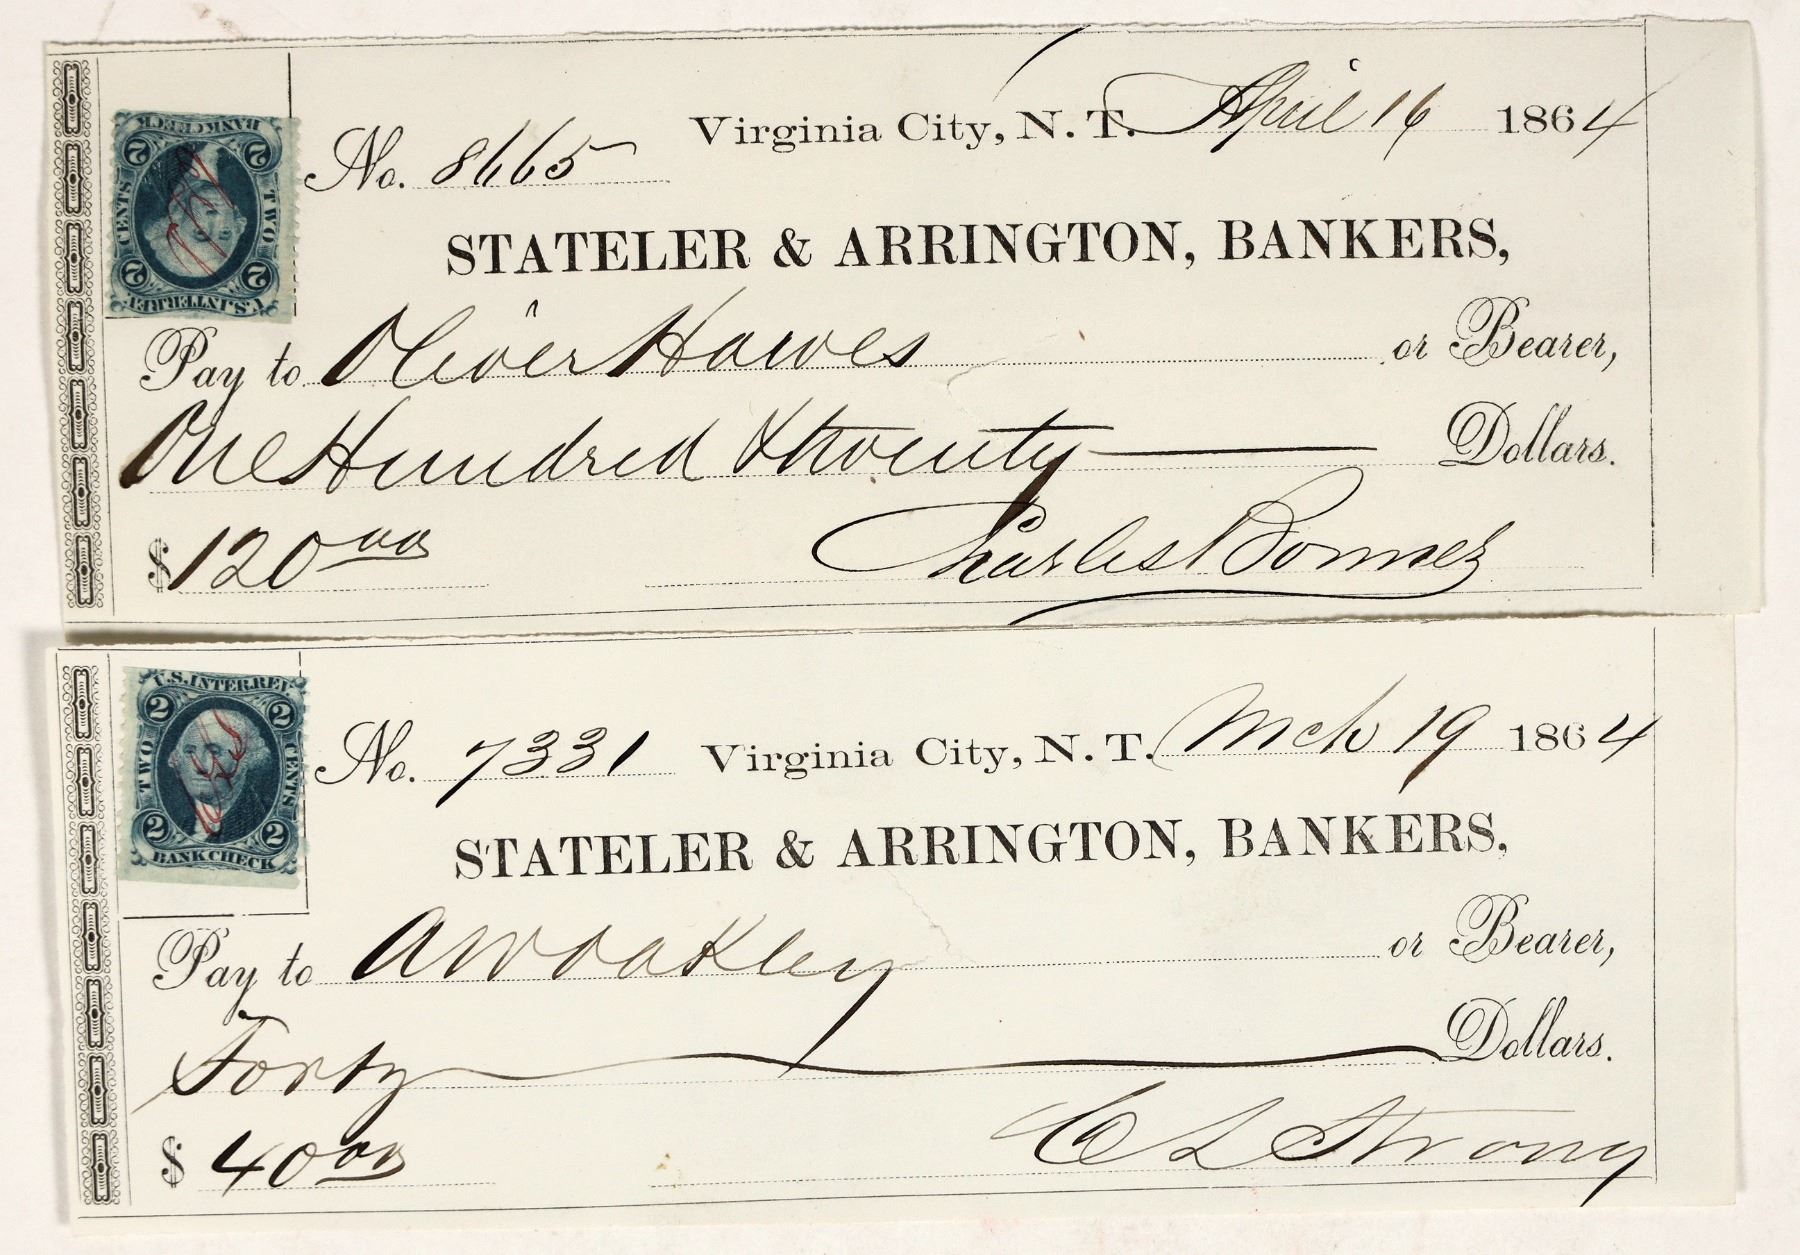 BANK CHECK
2 2
CENTS TWO
2 2
U.S. INTER. REV.
Virginia City, N. T. April 16 1864
No. 8665
STATELER & ARRINGTON, BANKERS,
Pay to Oliver Hawes or Bearer,
One Hundred & twenty Dollars.
$120 00
Charles Bonner
U.S. INTER. REV.
2 2
TWO CENTS
2 2
BANK CHECK
No. 7331 Virginia City, N. T. Mch 19 1864
STATELER & ARRINGTON, BANKERS,
Pay to A W Oakley or Bearer,
Forty Dollars.
$40 00
C L Strong